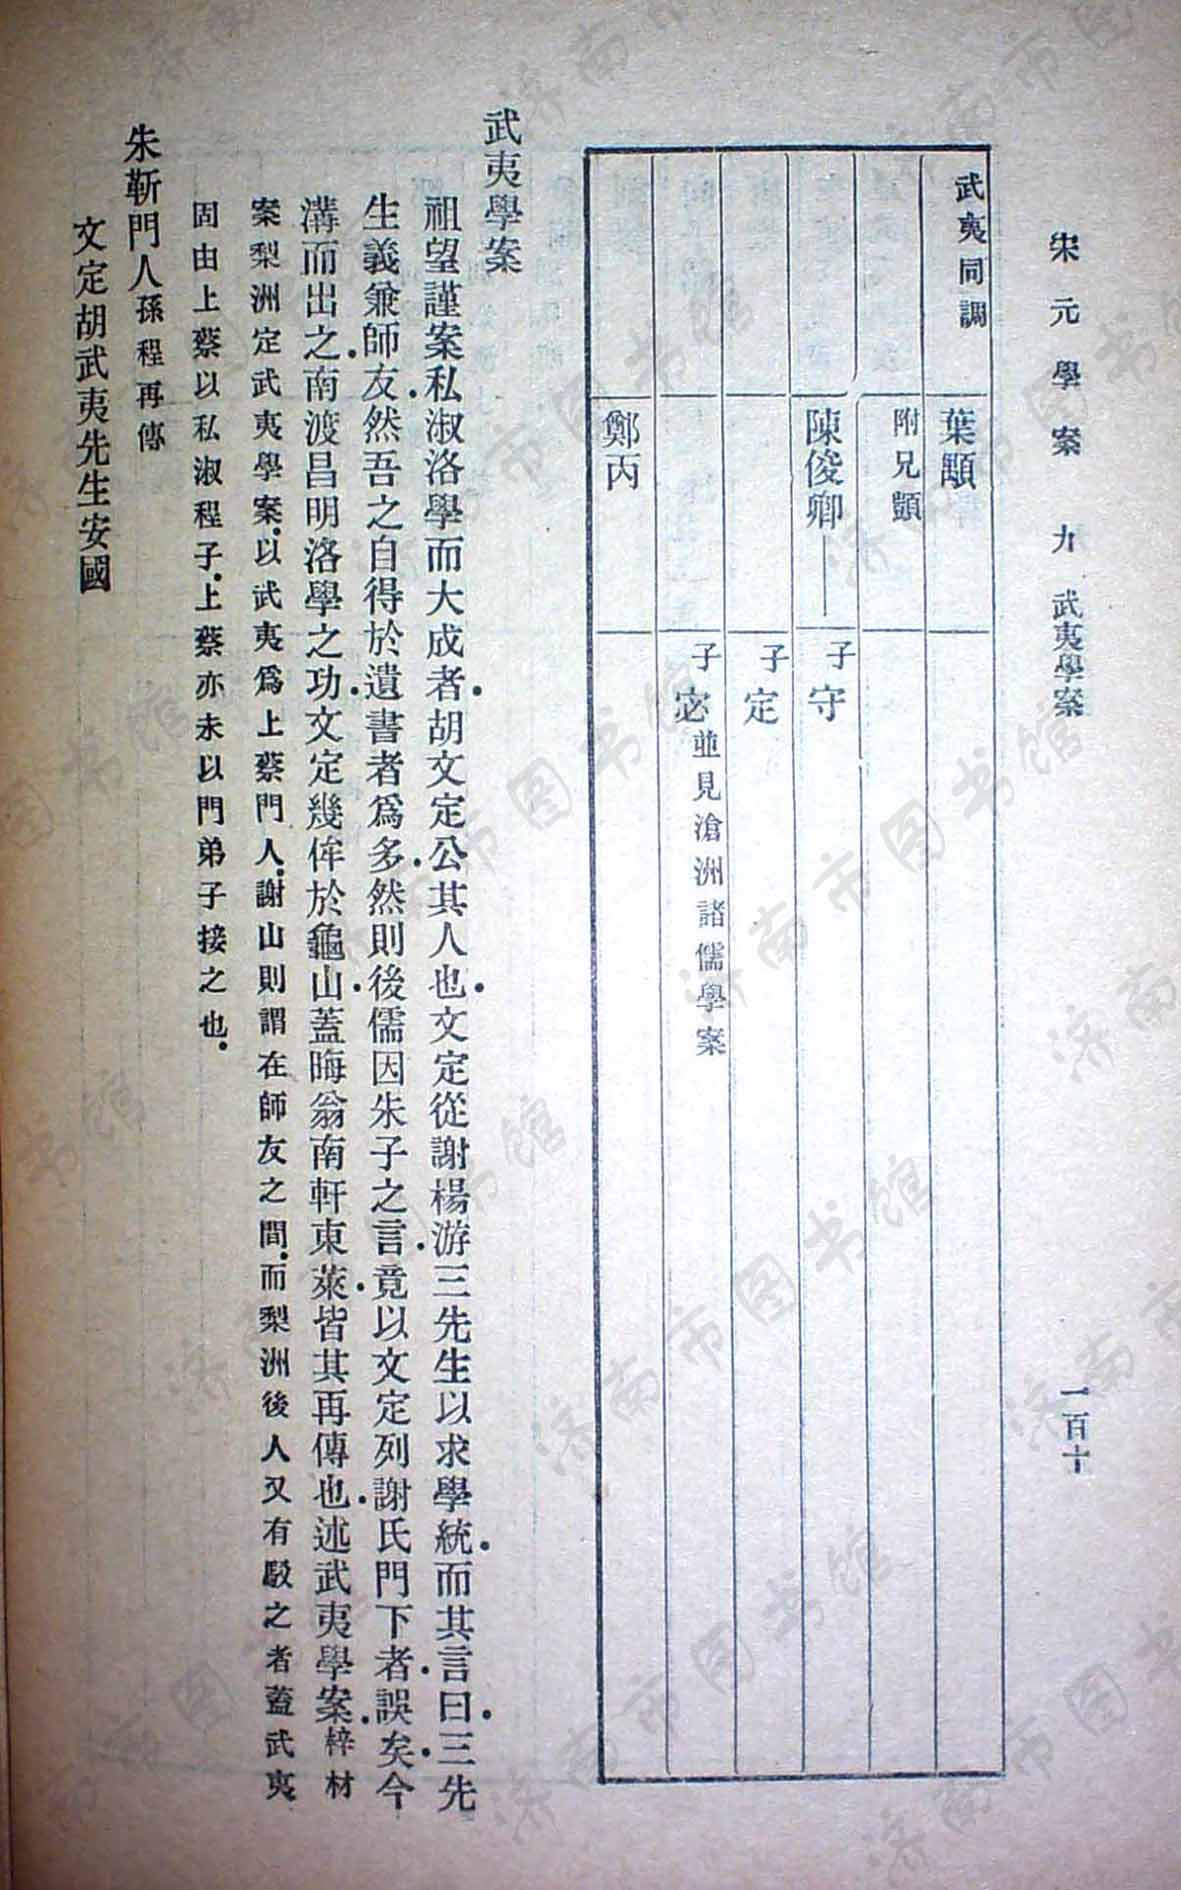 宋元學案 九 武夷學案 一百十
武夷同調
葉顒
附兄顗
陳俊卿
子守
子定
子宓並見滄洲諸儒學案
鄭丙
武夷學案
祖望謹案私淑洛學而大成者胡文定公其人也文定從謝楊游三先生以求學統而其言曰三先
生義兼師友然吾之自得於遺書者爲多然則後儒因朱子之言竟以文定列謝氏門下者誤矣今
溝而出之南渡昌明洛學之功文定幾侔於龜山蓋晦翁南軒東萊皆其再傳也述武夷學案梓材
案梨洲定武夷學案以武夷爲上蔡門人謝山則謂在師友之間而梨洲後人又有駁之者蓋武夷
固由上蔡以私淑程子上蔡亦未以門弟子接之也
朱靳門人孫程再傳
文定胡武夷先生安國
济南市图书馆